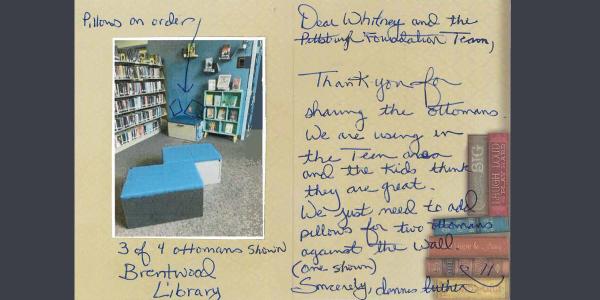 Pillows on order
3 of 4 ottomans shown
Brentwood
Library
Dear Whitney and the
Pittsburgh Foundation Team,
Thank you for
sharing the ottomans.
We are using in
the Teen area
and the kids think
they are great.
We just need to add
pillows for two ottomans
against the wall
(one shown)
Sincerely,
BIG
LAUGH LOUD